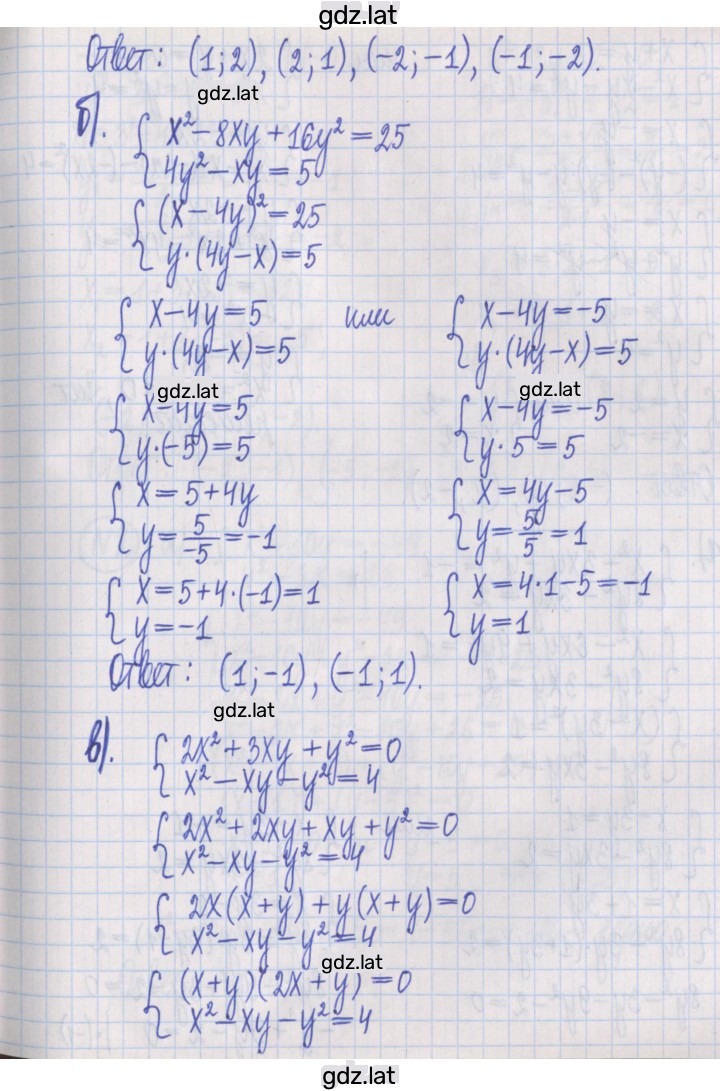 gdz.lat
Ответ: (1;2), (2;1), (-2;-1), (-1;-2).
gdz.lat
б). { x² - 8xy + 16y² = 25
{ 4y² - xy = 5
{ (x - 4y)² = 25
{ y·(4y - x) = 5
{ x - 4y = 5 или { x - 4y = -5
{ y·(4y - x) = 5 { y·(4y - x) = 5
gdz.lat gdz.lat
{ x - 4y = 5 { x - 4y = -5
{ y·(-5) = 5 { y·5 = 5
{ x = 5 + 4y { x = 4y - 5
{ y = 5/-5 = -1 { y = 5/5 = 1
{ x = 5 + 4·(-1) = 1 { x = 4·1 - 5 = -1
{ y = -1 { y = 1
Ответ: (1;-1), (-1;1).
gdz.lat
в). { 2x² + 3xy + y² = 0
{ x² - xy - y² = 4
{ 2x² + 2xy + xy + y² = 0
{ x² - xy - y² = 4
{ 2x(x + y) + y(x + y) = 0
{ x² - xy - y² = 4
gdz.lat
{ (x + y)(2x + y) = 0
{ x² - xy - y² = 4
gdz.lat